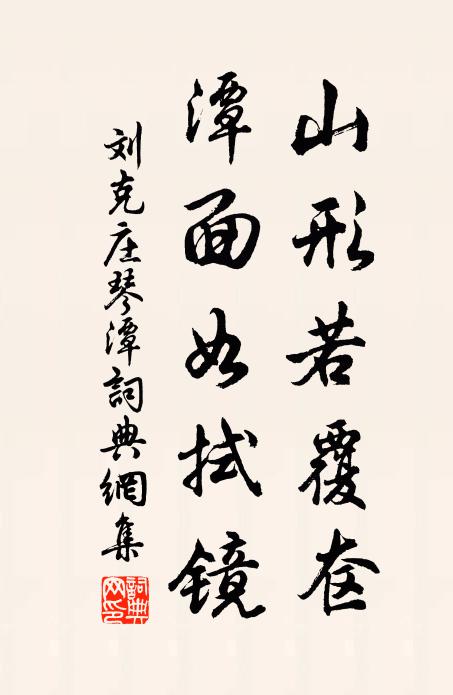 山形若覆奁
潭面如拭镜
刘克庄琴潭詞典網集
詞典网印